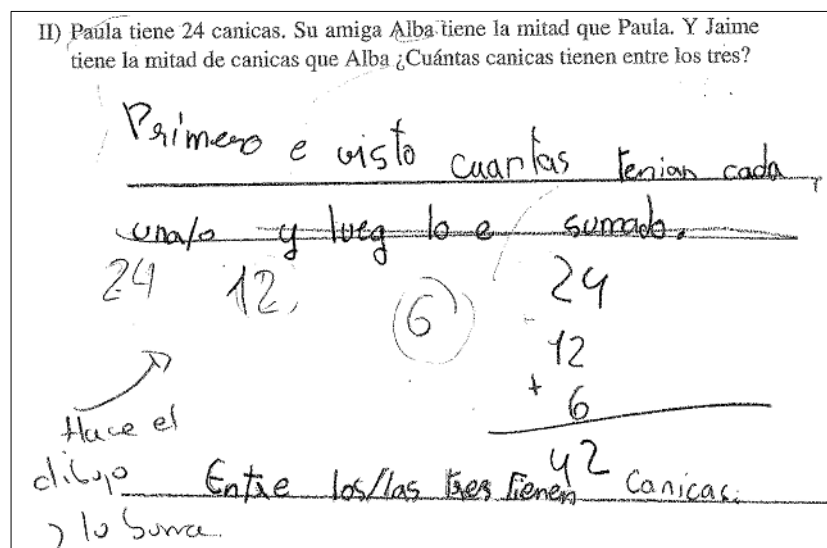 II) Paula tiene 24 canicas. Su amiga Alba tiene la mitad que Paula. Y Jaime
tiene la mitad de canicas que Alba ¿Cuántas canicas tienen entre los tres?
Primero e visto cuantas tenian cada
una/o y lueg lo e sumado.
24 12, 6
24
12
+ 6
42
Hace el
dibujo
y lo suma.
Entre los/las tres tienen 42 canicas.